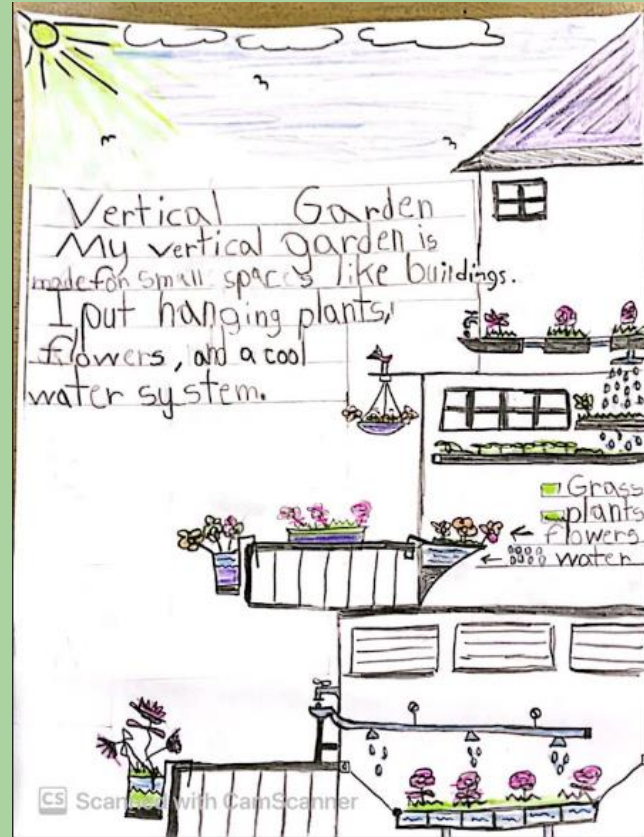 Vertical Garden
My vertical garden is
made for small spaces like buildings.
I put hanging plants,
flowers, and a cool
water system.
Grass
plants
flowers
water
CS Scanned with CamScanner